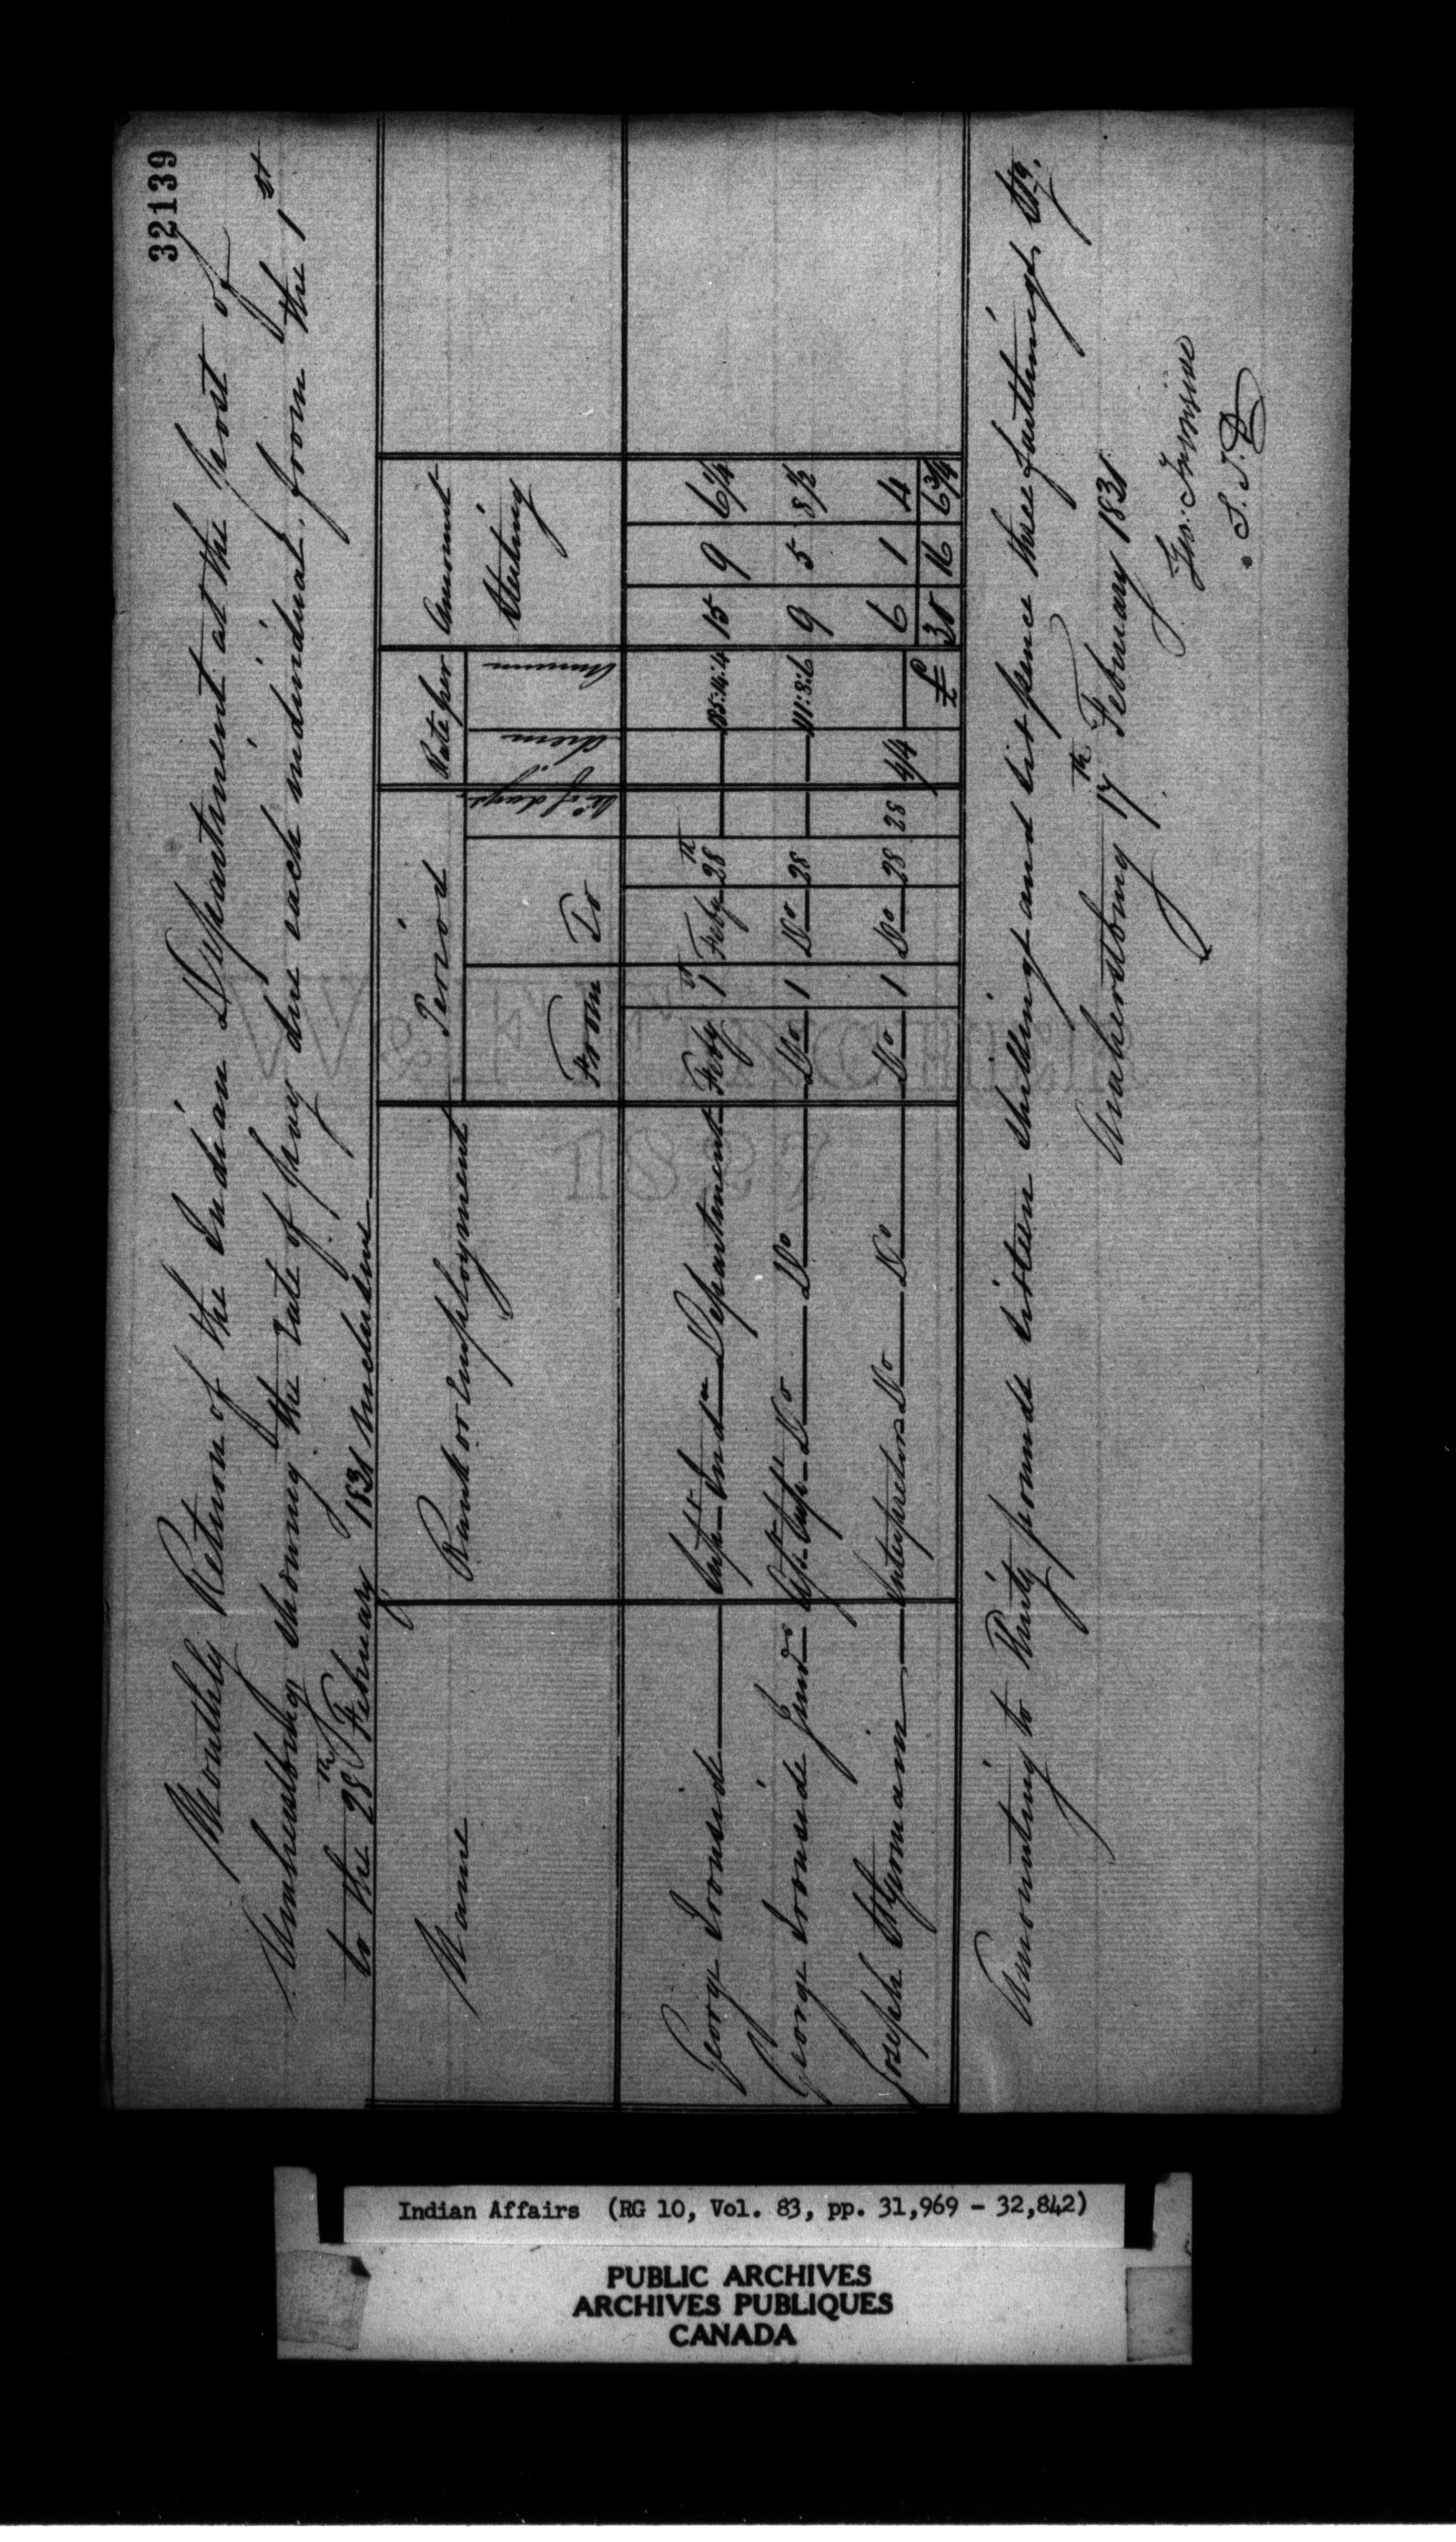 32139
Monthly Return of the Indian Department at the post of
Amherstburg showing the rate of pay due each individual from the 1st
to the 28th February 1831 inclusive
Name Rank or Employment Period Rate per Amount Sterling
From To No of days diem Annum
George Ironside Supt Indn Department Feby 1st Feby 28th 185:14:4 15 9 6 1/4
George Ironside Junr Do Do Do 1 Do 28 111:8:6 9 5 8 1/2
Joseph St Germain Interpreter Do Do Do 1 Do 28 28 4/4 6 1 4
£ 30 16 6 3/4
Amounting to Thirty pounds sixteen shillings and six pence three farthings Stg.
Amherstburg 17th February 1831
Geo: Ironside
S. I. D
W & T TR
1827
Indian Affairs (RG 10, Vol. 83, pp. 31,969 - 32,842)
PUBLIC ARCHIVES
ARCHIVES PUBLIQUES
CANADA